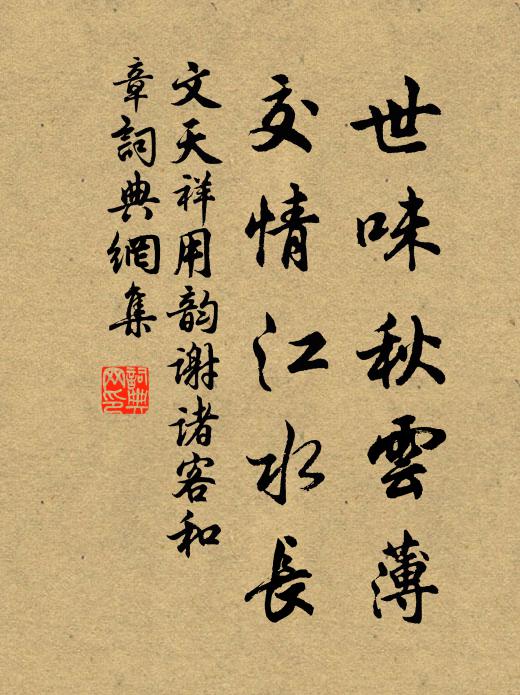 世味秋雲薄
交情江水長
文天祥用韵谢诸客和
章詞典網集
詞典網印